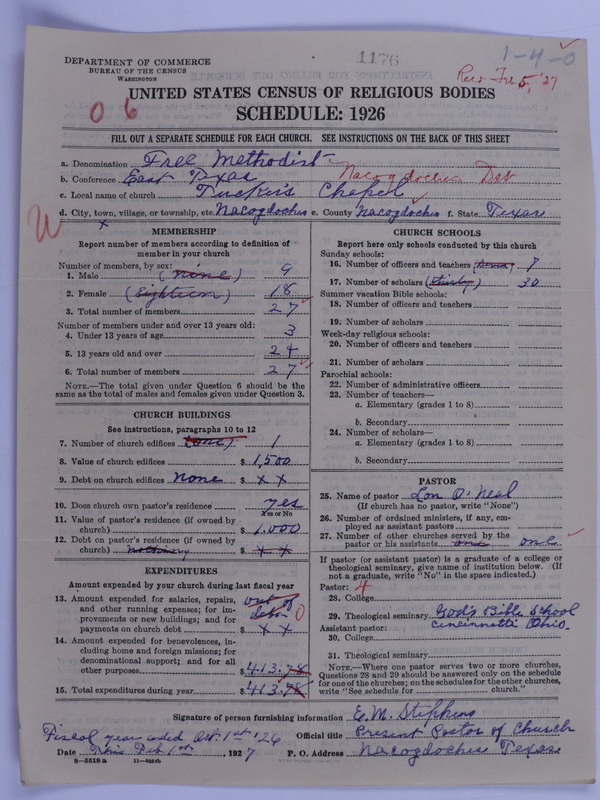 DEPARTMENT OF COMMERCE
BUREAU OF THE CENSUS
WASHINGTON
1176
1-4-0
Rec'd Feb 5, '27
UNITED STATES CENSUS OF RELIGIOUS BODIES
SCHEDULE: 1926
0 6
FILL OUT A SEPARATE SCHEDULE FOR EACH CHURCH. SEE INSTRUCTIONS ON THE BACK OF THIS SHEET
a. Denomination Free Methodist
b. Conference East Texas Nacogdoches Dst
c. Local name of church Tucker's Chapel
d. City, town, village, or township, etc. Nacogdoches e. County Nacogdoches f. State Texas
W
MEMBERSHIP
Report number of members according to definition of
member in your church
Number of members, by sex:
1. Male (nine) 9
2. Female (Eighteen) 18
3. Total number of members 27
Number of members under and over 13 years old:
4. Under 13 years of age 3
5. 13 years old and over 24
6. Total number of members 27
NOTE.—The total given under Question 6 should be the
same as the total of males and females given under Question 3.
CHURCH BUILDINGS
See instructions, paragraphs 10 to 12
7. Number of church edifices (one) 1
8. Value of church edifices $ 1,500
9. Debt on church edifices none $ x x
10. Does church own pastor's residence yes
Yes or No
11. Value of pastor's residence (if owned by
church) $ 1.000
12. Debt on pastor's residence (if owned by
church) $ x x
EXPENDITURES
Amount expended by your church during last fiscal year
13. Amount expended for salaries, repairs,
and other running expenses; for im-
provements or new buildings; and for
payments on church debt out of debt 0 $ x x
14. Amount expended for benevolences, in-
cluding home and foreign missions; for
denominational support; and for all
other purposes $ 413.78
15. Total expenditures during year $ 413.78
CHURCH SCHOOLS
Report here only schools conducted by this church
Sunday schools:
16. Number of officers and teachers 7
17. Number of scholars (thirty) 30
Summer vacation Bible schools:
18. Number of officers and teachers
19. Number of scholars
Week-day religious schools:
20. Number of officers and teachers
21. Number of scholars
Parochial schools:
22. Number of administrative officers
23. Number of teachers—
a. Elementary (grades 1 to 8)
b. Secondary
24. Number of scholars—
a. Elementary (grades 1 to 8)
b. Secondary
PASTOR
25. Name of pastor Lon O'Neal
(If church has no pastor, write "None")
26. Number of ordained ministers, if any, em-
ployed as assistant pastors
27. Number of other churches served by the
pastor or his assistants one one
If pastor (or assistant pastor) is a graduate of a college or
theological seminary, give name of institution below. (If
not a graduate, write "No" in the space indicated.)
Pastor: 4
28. College
29. Theological seminary God's Bible School
Assistant pastor: Cincinnatti Ohio.
30. College
31. Theological seminary
NOTE.—Where one pastor serves two or more churches,
Questions 28 and 29 should be answered only on the schedule
for one of the churches; on the schedules for the other churches,
write "See schedule for church."
Signature of person furnishing information E. M. Stephens
Fiscal year ended Oct. 1st '26 Official title Present Pastor of Church
Date This Feb 1st, 1927 P. O. Address Nacogdoches Texas
8-5518 a